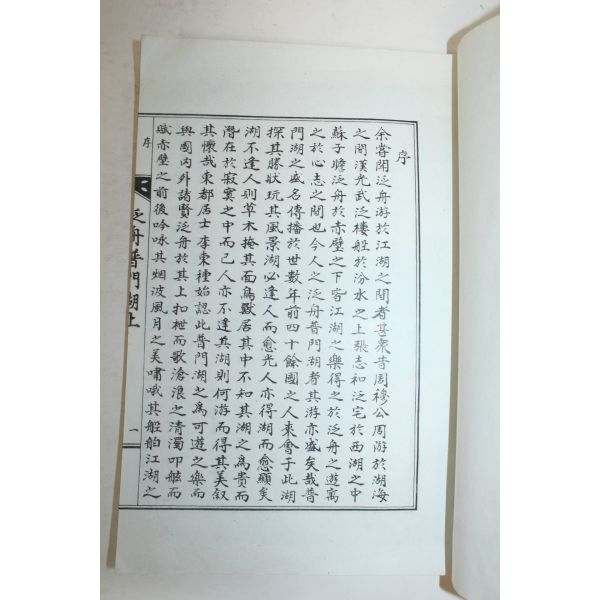 序
余嘗聞泛舟游於江湖之間者甚衆昔周穆公周游於湖海
之間漢光武泛樓船於汾水之上張志和泛宅於西湖之中
蘇子瞻泛舟於赤壁之下皆江湖之樂得之於泛舟之遊寓
之於心志之間也今人之泛舟普門湖者其游亦盛矣哉普
門湖之盛名傳播於世數年前四十餘國之人來會于此湖
探其勝狀玩其風景湖必逢人而愈光人亦得湖而愈顯矣
湖不逢人則草木掩其面鳥獸居其中不知其湖之爲貴而
潛在於寂寞之中而已人亦不逢其湖則何游而得其美叙
其懷哉東都居士李東種始認此普門湖之爲可遊之樂而
與國內外諸賢泛舟於其上扣枻而歌滄浪之清濁叩舷而
賦赤壁之前後吟咏其烟波風月之美嘯哦其船舶江湖之
序
泛舟普門湖上
一